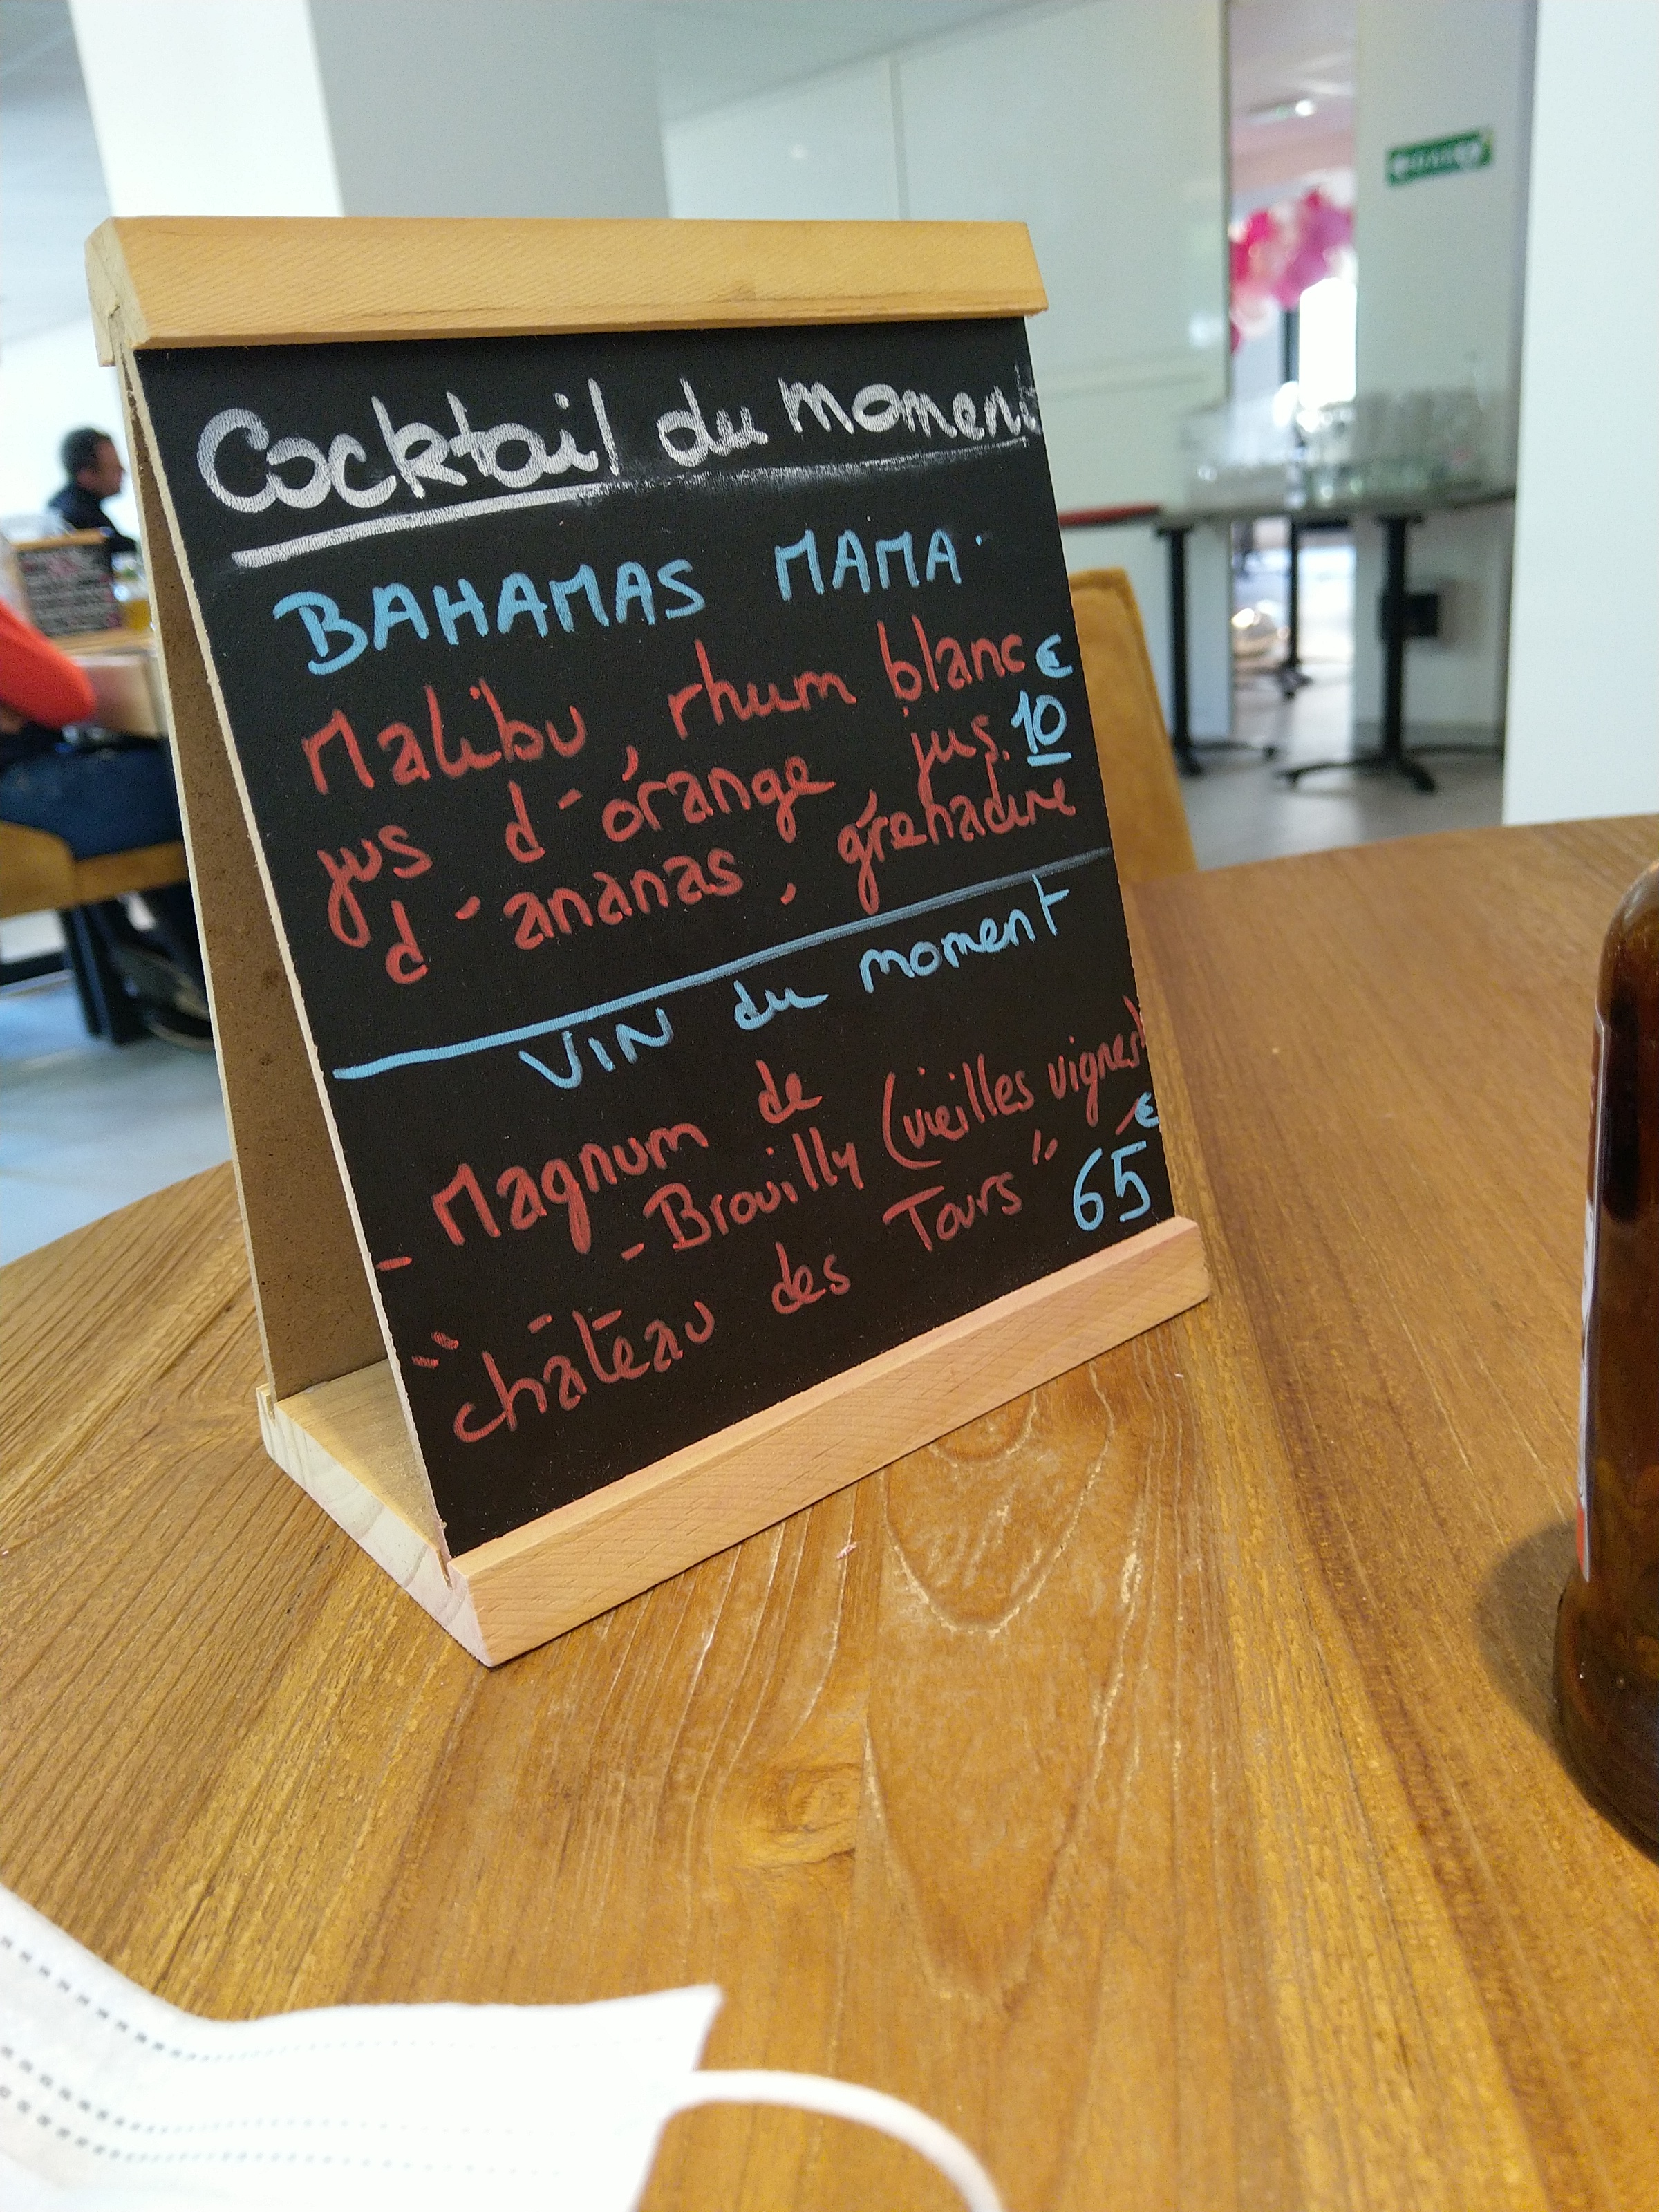 Cocktail du moment
BAHAMAS MAMA.
Malibu, rhum blanc €
jus d'orange, jus. 10
d'ananas, grenadine
VIN du moment
- Magnum de
- Brouilly (vieilles vignes)
"château des Tours" 65 €